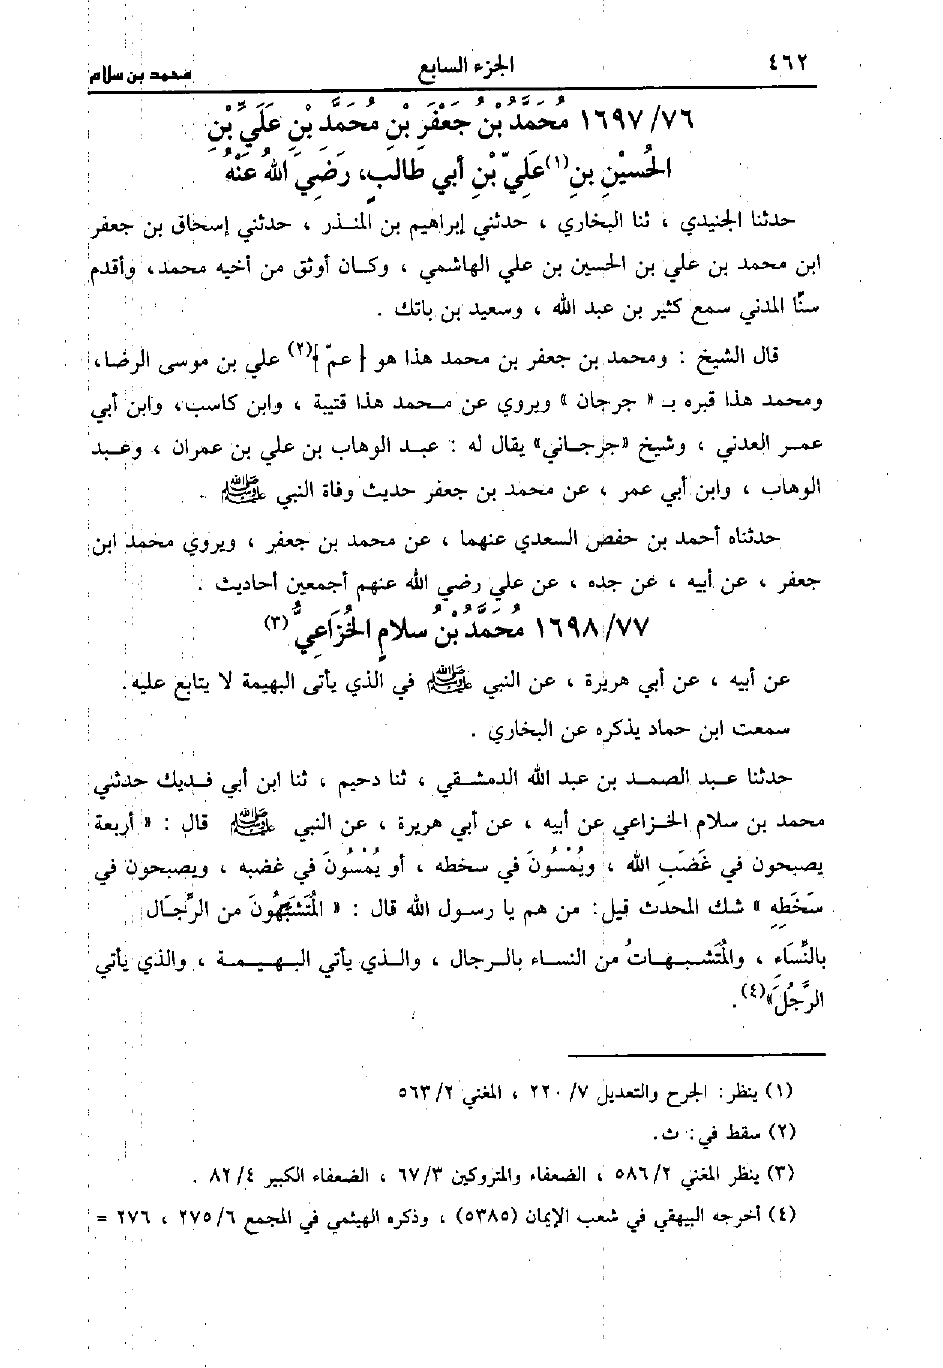 ٤٦٢ الجزء السابع محمد بن سلام
١٦٩٧/٧٦ مُحَمَّدُ بْنُ جَعْفَرِ بْنِ مُحَمَّدِ بْنِ عَلَيِّ بْنِ
الحُسَيْنِ بنِ(١) عَلَيِّ بْنِ أبي طالبٍ، رَضيَ اللهُ عَنْهُ
حدثنا الجنيدي ، ثنا البخاري ، حدثني إبراهيم بن المنذر ، حدثني إسحاق بن جعفر
ابن محمد بن علي بن الحسين بن علي الهاشمي ، وكان أوثق من أخيه محمد، وأقدم
سنًّا المدني سمع كثير بن عبد الله ، وسعيد بن باتك .
قال الشيخ : ومحمد بن جعفر بن محمد هذا هو [ عمّ ](٢) علي بن موسى الرضا،
ومحمد هذا قبره بـ « جرجان » ويروي عن محمد هذا قتيبة ، وابن كاسب، وابن أبي
عمر العدني ، وشيخ «جرجاني» يقال له : عبد الوهاب بن علي بن عمران ، وعبد
الوهاب ، وابن أبي عمر ، عن محمد بن جعفر حديث وفاة النبي ﷺ .
حدثناه أحمد بن حفص السعدي عنهما ، عن محمد بن جعفر ، ويروي محمد ابن
جعفر ، عن أبيه ، عن جده ، عن علي رضي الله عنهم أجمعين أحاديث .
١٦٩٨/٧٧ مُحَمَّدُ بْنُ سلامٍ الخُزَاعِيُّ(٣)
عن أبيه ، عن أبي هريرة ، عن النبي ﷺ في الذي يأتى البهيمة لا يتابع عليه.
سمعت ابن حماد يذكره عن البخاري .
حدثنا عبد الصمد بن عبد الله الدمشقي ، ثنا دحيم ، ثنا ابن أبي فديك حدثني
محمد بن سلام الخزاعي عن أبيه ، عن أبي هريرة ، عن النبي ﷺ قال : « أربعة
يصبحون في غَضَبِ الله ، ويُمْسُونَ في سخطه ، أو يُمْسُونَ في غضبه ، ويصبحون في
سَخَطِهِ » شك المحدث قيل: من هم يا رسول الله قال : « المُتَشَبِّهُونَ من الرِّجَال
بالنِّسَاءِ ، والمُتَشبهاتُ من النساء بالرجال ، والذي يأتي البهيمة ، والذي يأتي
الرَّجُلَ»(٤).
(١) ينظر: الجرح والتعديل ٧/ ٢٢٠ ، المغني ٢/ ٥٦٣
(٢) سقط في: ث.
(٣) ينظر المغني ٢/ ٥٨٦ ، الضعفاء والمتروكين ٣/ ٦٧ ، الضعفاء الكبير ٤/ ٨٢ .
(٤) أخرجه البيهقي في شعب الإيمان (٥٣٨٥) ، وذكره الهيثمي في المجمع ٦/ ٢٧٥ ، ٢٧٦ =